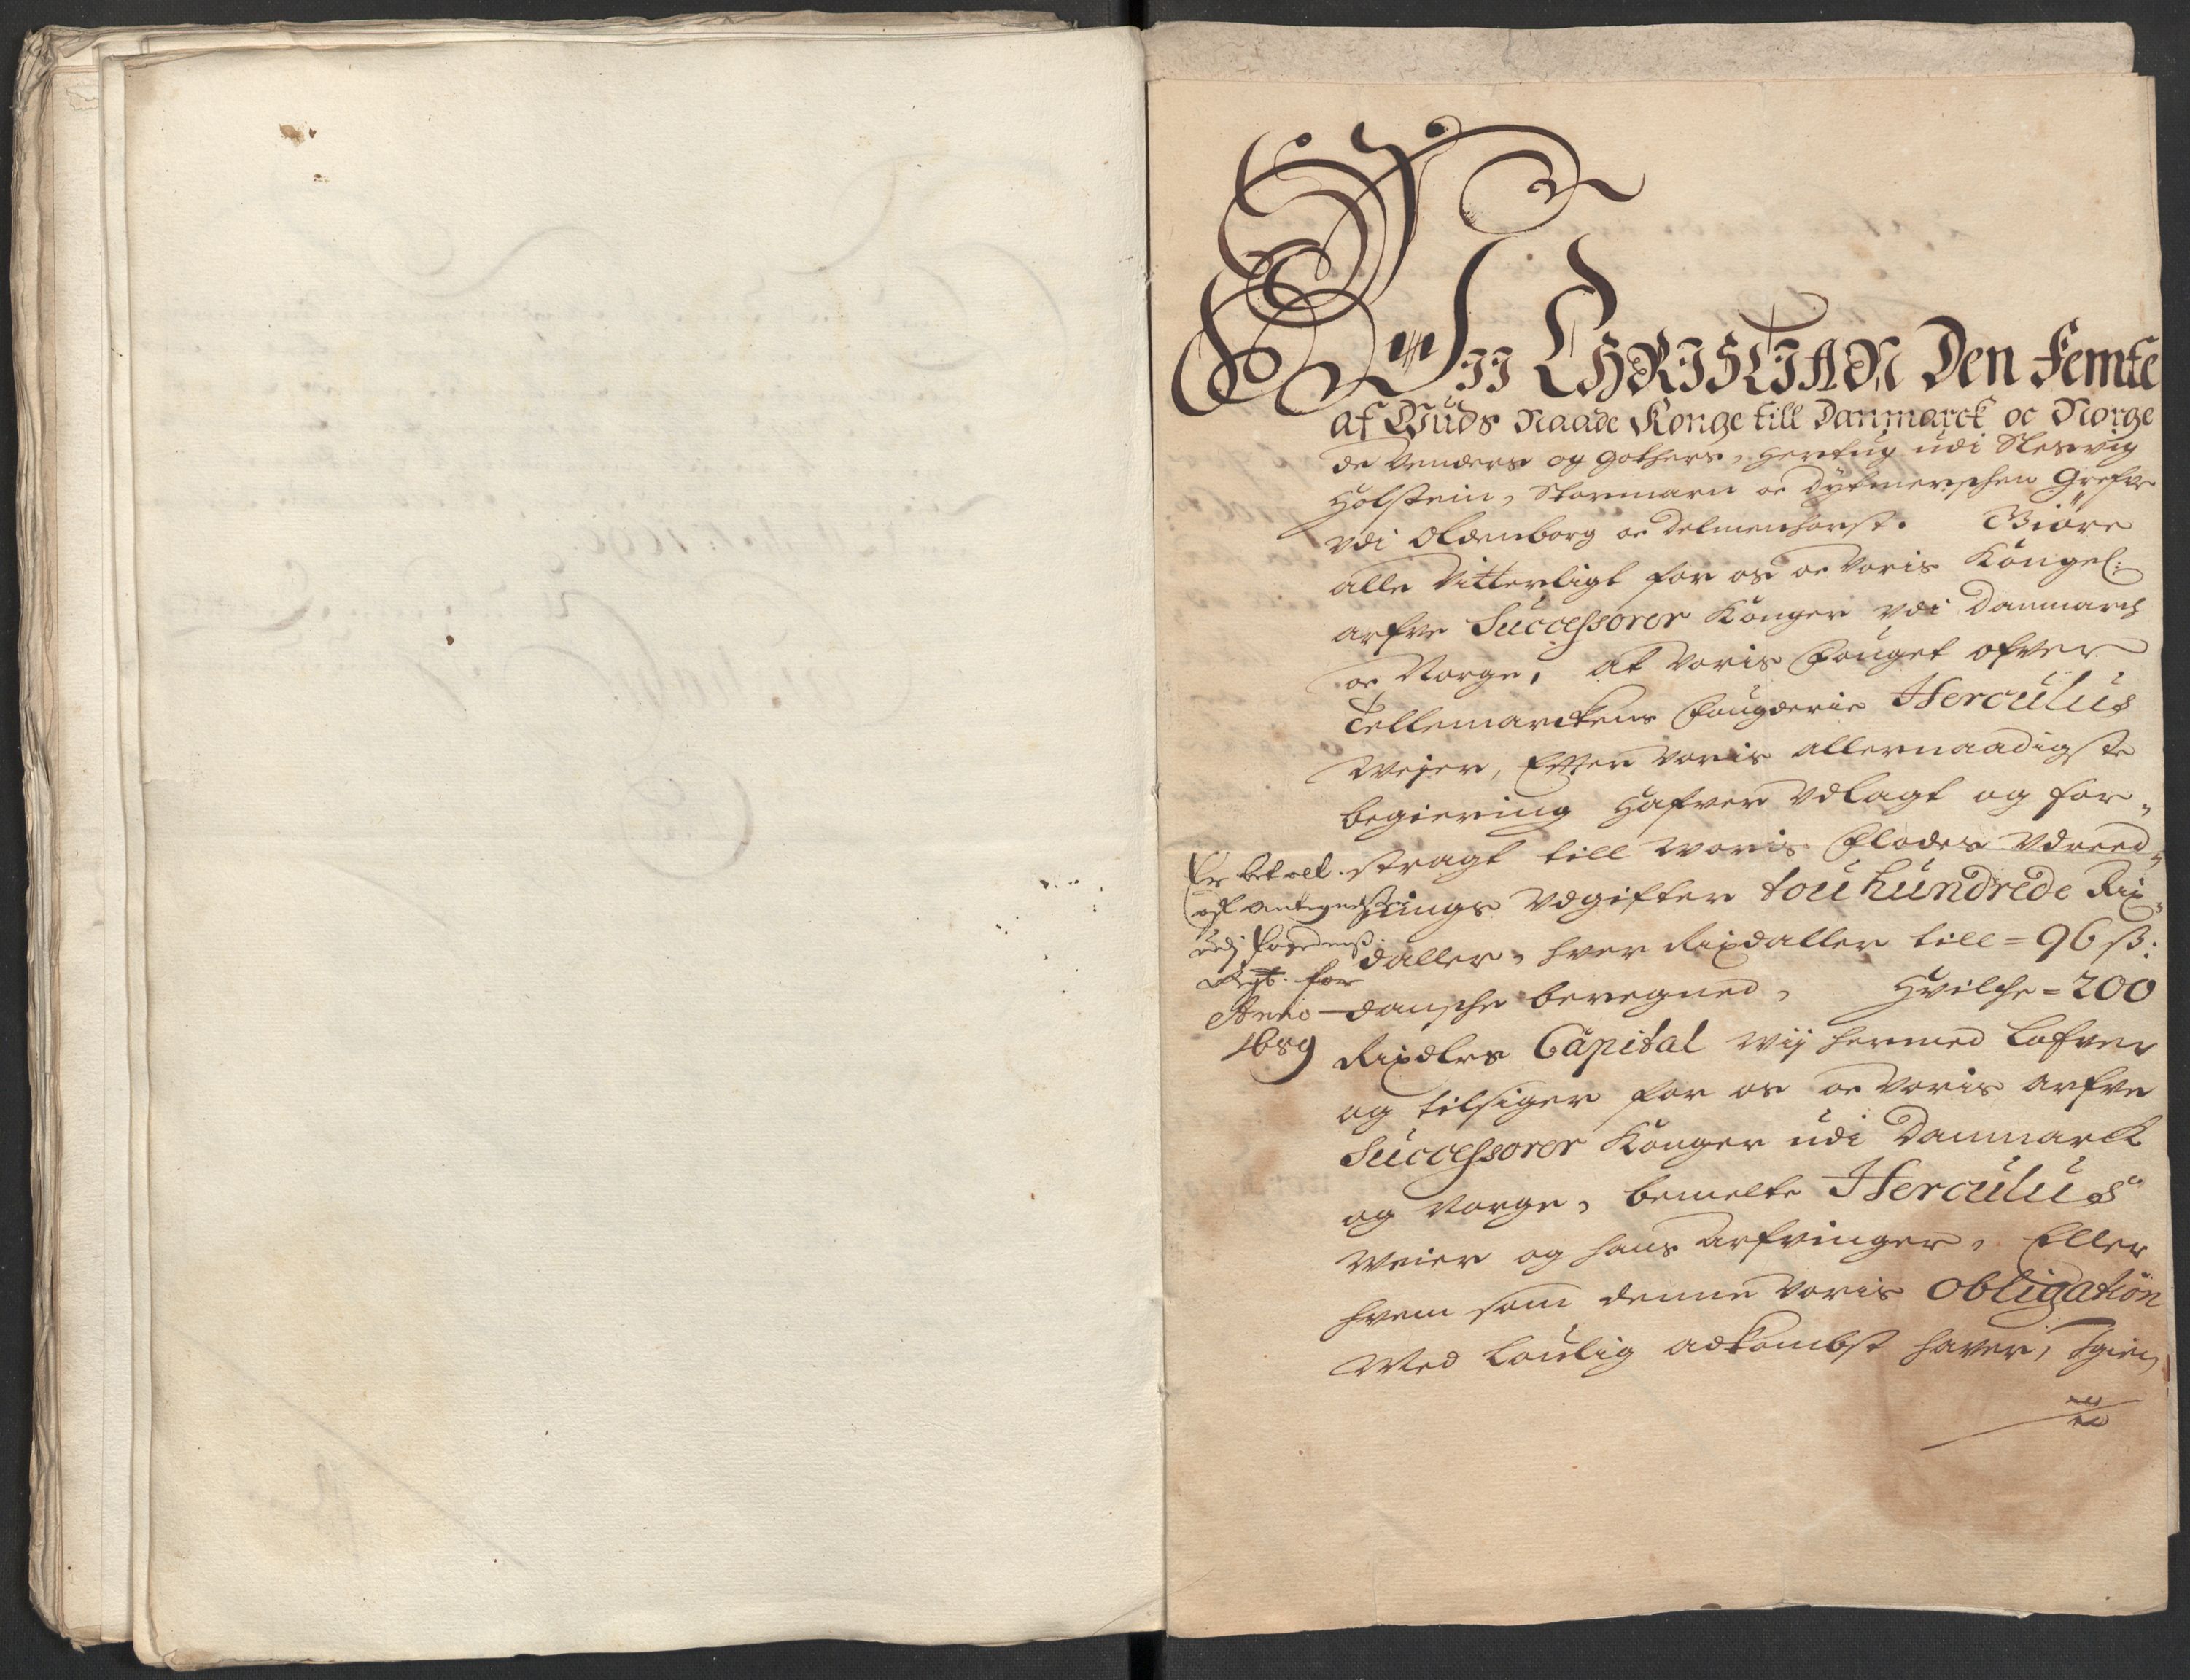 Wii CHRISTIAN Den Femte
af Guds Naade Konge till Danmarck oc Norge
de Venders og Gothers, Hertug udi Slesvig
Holstein, Stormarn oc Dytmerschen Grefve
udi Oldenborg oc Delmenhorst. Giøre
alle Vitterligt for os oc Voris Kongel:
arfve Successorer Konger udi Danmarch
oc Norge, at Voris Fouget ofver
Tellemarckens Fougderie Herculus
Weyer, Effter Voris allernaadigste
begiering Hafver Udlagt og for„
stragt till Woris Flodes Udreed„
nings Udgifter tou hundrede Rix„
daller, hver Rixdaller till = 96 ß:
dansche beregned, Hvilche = 200
Rixdlrs Capital wij hermed Lofver
og tilsiger for os oc Voris arfve
Successorer Konger udi Danmarck
og Norge, bemelte Herculus
Weier og hans Arfvinger, Eller
hvem som denne Voris Obligation
Med Loulig adkombst haver, Igien„
Er betalt
udj Fogedens
Regt. for
Anno
1689